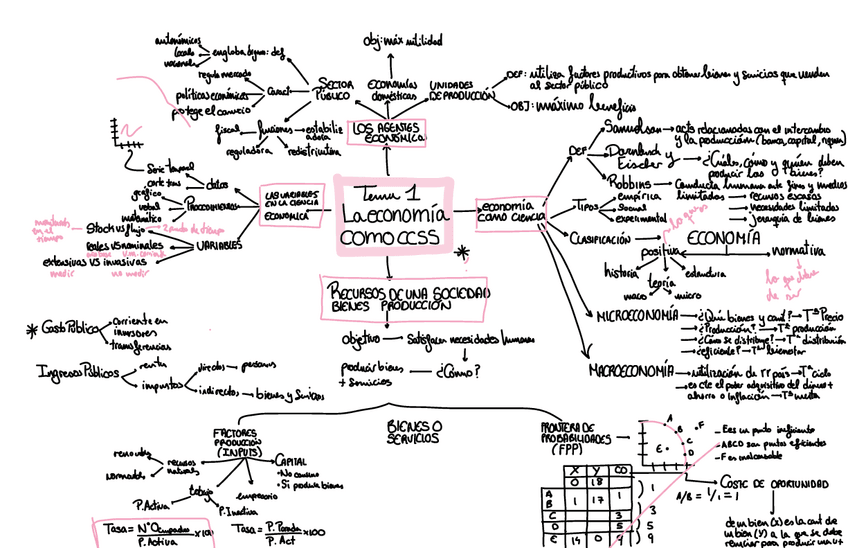 Obj: máx utilidad
autonómicos
locales
nacionales
engloba
regula mercado
políticas económicas
protege el comercio
Caract
SECTOR
PÚBLICO
fiscal
funciones
estabiliz
adora
reguladora
redistributiva
economías
domésticas
UNIDADES
DE PRODUCCIÓN
DEF: utiliza factores productivos para obtener bienes y servicios que venden
al sector público
OBJ: máximo beneficio
LOS AGENTES
ECONÓMICO
Tema 1
La economía
COMO CCSS
LAS VARIABLES
EN LA CIENCIA
ECONÓMICA
Serie temporal
corte trans
datos
gráfico
verbal
matemático
Procedimientos
Stock vs flujo
2 puntos de tiempo
reales vs nominales
VARIABLES
extensivas vs invasivas
medir
no medir
economía
como ciencia
DEF
Samuelson
acts relacionadas con el intercambio
y la producción
Fischer y
¿Cuáles, cómo y quién deben
producir los bienes?
Robbins
Conducta humana ante fines y medios
limitados
recursos escasos
necesidades limitadas
jerarquía de bienes
TIPOS
empírica
social
experimental
CLASIFICACIÓN
ECONOMÍA
positiva
normativa
historia
teoría
estructura
macro
micro
lo que debe
de ser
MICROECONOMÍA
¿Qué bienes y cant? → Tª Precio
¿Producción? → Tª producción
¿Cómo se distribuye? → Tª distribución
¿eficiente? → Tª bienestar
MACROECONOMÍA
utilización de rr país → Tª ciclo
es cte el poder adquisitivo del dinero +
ahorro o inflación → Tª
RECURSOS DE UNA SOCIEDAD
BIENES PRODUCCIÓN
objetivo
Satisfacer necesidades humanas
producir bienes
+ servicios
¿Cómo?
* Gasto Público
corriente en
inversores
transferencias
Ingresos Públicos
rentas
impuestos
directos
personas
indirectos
bienes y servicios
BIENES O
SERVICIOS
FACTORES
PRODUCCIÓN
(INPUTS)
recursos
naturales
trabajo
P. Activa
P. Inactiva
empresario
CAPITAL
• No consumo
• Si produce bienes
Tasa = Nº Ocupados
P. Activa
x 100
Tasa = P. Parada
P. Act
x 100
FRONTERA DE
PROBABILIDADES
(FPP)
A
B
C
D
E
F
E es un punto ineficiente
ABCD son puntos eficientes
F es inalcanzable
X Y CO
0 18
A
B 1 17 1
C 3
D 5
E 14 0 9
1
3
5
9
COSTE DE OPORTUNIDAD
A/B = 1/1 = 1
de un bien (x) es la cant de
un bien (y) a la que se debe
renunciar para producir una u+